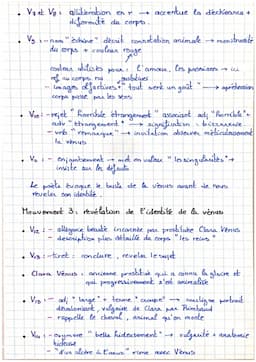 V7 et V8 : allitération en r → accentue la déchéance + difformité du corps.
V9 : - nom "échine" décrit connotation animale → monstruosité du corps + couleur rouge
couleur utilisée pour : l'amour, les passions → ici
ref au corps
- images olfactives + "tout sent un goût" → appréhension corps passé par les sens
V10 : - rejet "horrible étrangement" associant adj "horrible" +
adv "étrangement" → signification : bizarrerie
- verbe "remarque" → invitation observer méticuleusement la vénus
: - enjambement → met en valeur "les singularités" →
insiste sur les défauts
Le poète évoque le buste de la vénus avant de nous
révéler son identité.
Mouvement 3 : révélation de l'identité de la vénus
V12 : - allégorie beauté incarnée par prostituée Clara Venus
- description plus détaillé du corps "les reins"
V13 : - tiret : conclure, révéler le sujet
Clara Venus : ancienne prostituée qui a connu la gloire et
qui progressivement s'est animalisé
V13 : - adj "large" + terme "croupe" → souligne portrait
dévalorisant, vulgaire de Clara par Rimbaud
- rappelle le cheval, animal qu'on monte
V14 : - oxymore "belle hideusement" → vulgarité + anatomie
hideuse
- "d'un ulcère à l'anus" rime avec Venus